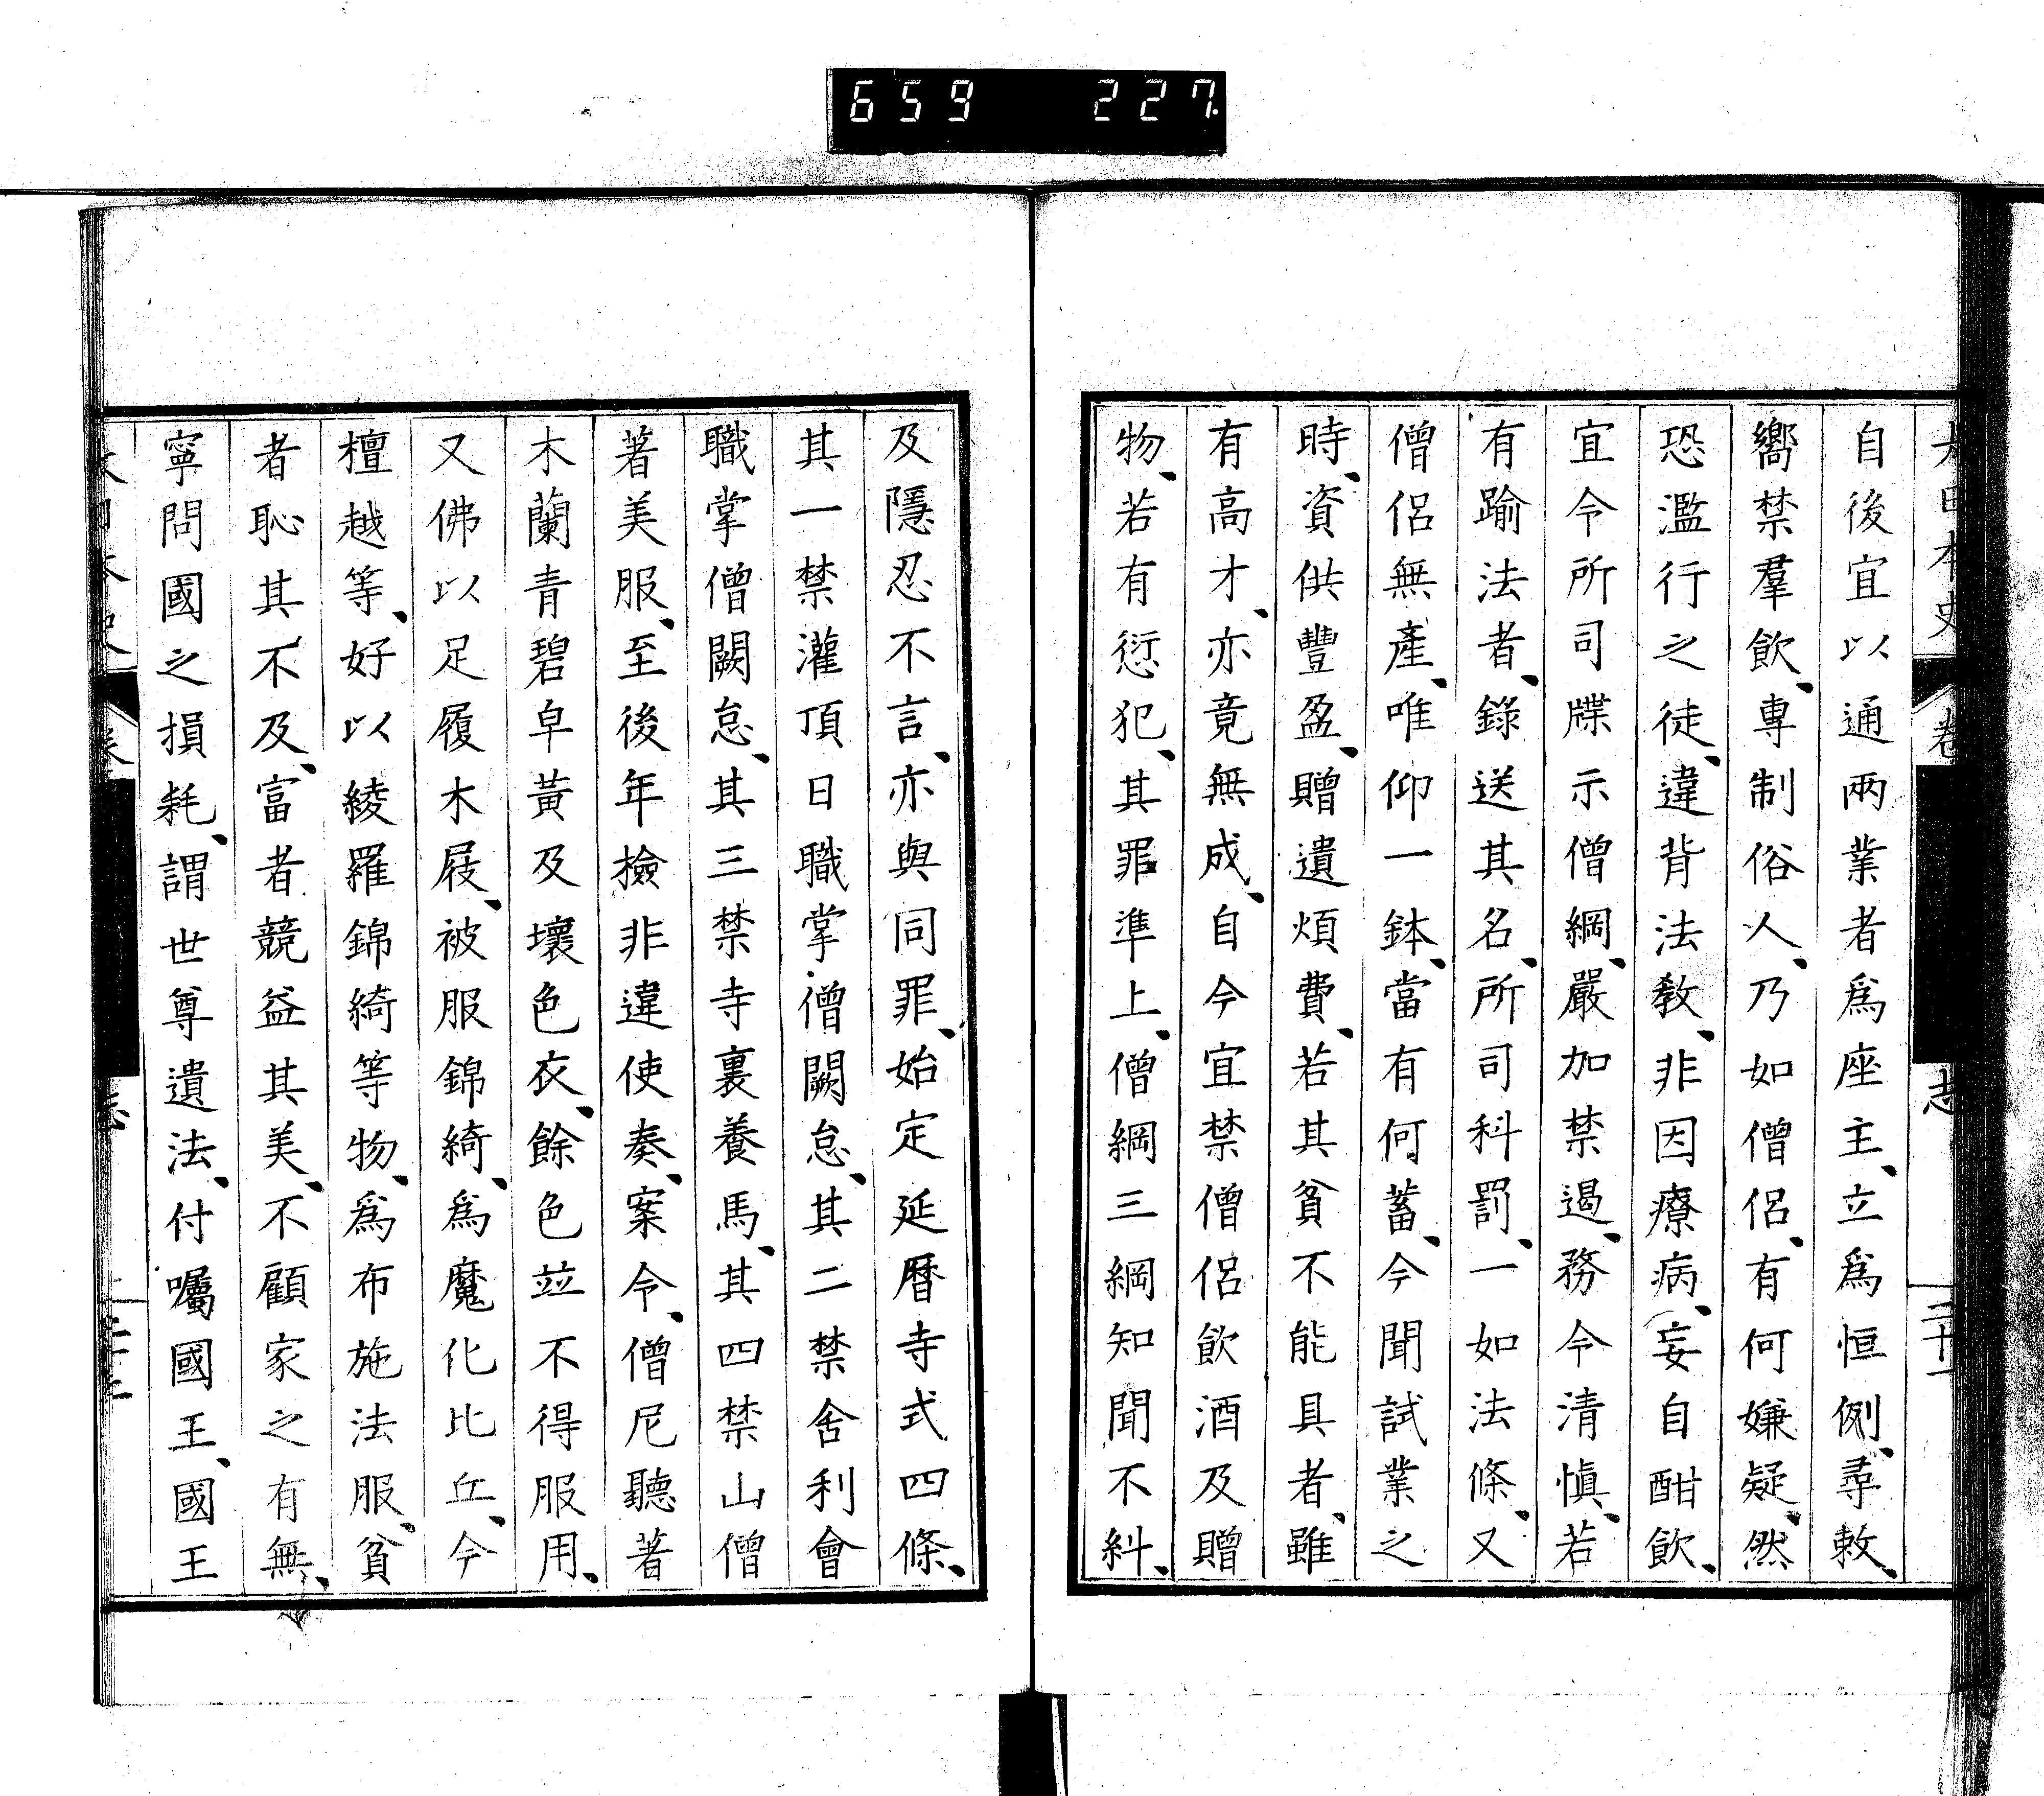 659 227
大日本史 卷 志 二十一
自後宜以通兩業者爲座主、立爲恒例、尋敕、
嚮禁羣飮、專制俗人、乃如僧侶、有何嫌疑、然
恐濫行之徒、違背法教、非因療病、妄自酣飮、
宜令所司牒示僧綱、嚴加禁遏、務令清愼、若
有踰法者、錄送其名、所司科罰、一如法條、又
僧侶無產、唯仰一鉢、當有何蓄、今聞試業之
時、資供豐盈、贈遺煩費、若其貧不能具者、雖
有高才、亦竟無成、自今宜禁僧侶飮酒及贈
物、若有愆犯、其罪準上、僧綱三綱知聞不糾、
及隱忍不言、亦與同罪、始定延暦寺式四條、
其一禁灌頂日職掌僧闕怠、其二禁舍利會
職掌僧闕怠、其三禁寺裏養馬、其四禁山僧
著美服、至後年檢非違使奏、案令、僧尼聽著
木蘭青碧皁黃及壞色衣、餘色竝不得服用、
又佛以足履木屐、被服錦綺、爲魔化比丘、今
檀越等、好以綾羅錦綺等物、爲布施法服、貧
者恥其不及、富者競益其美、不顧家之有無、
寧問國之損耗、謂世尊遺法、付囑國王、國王